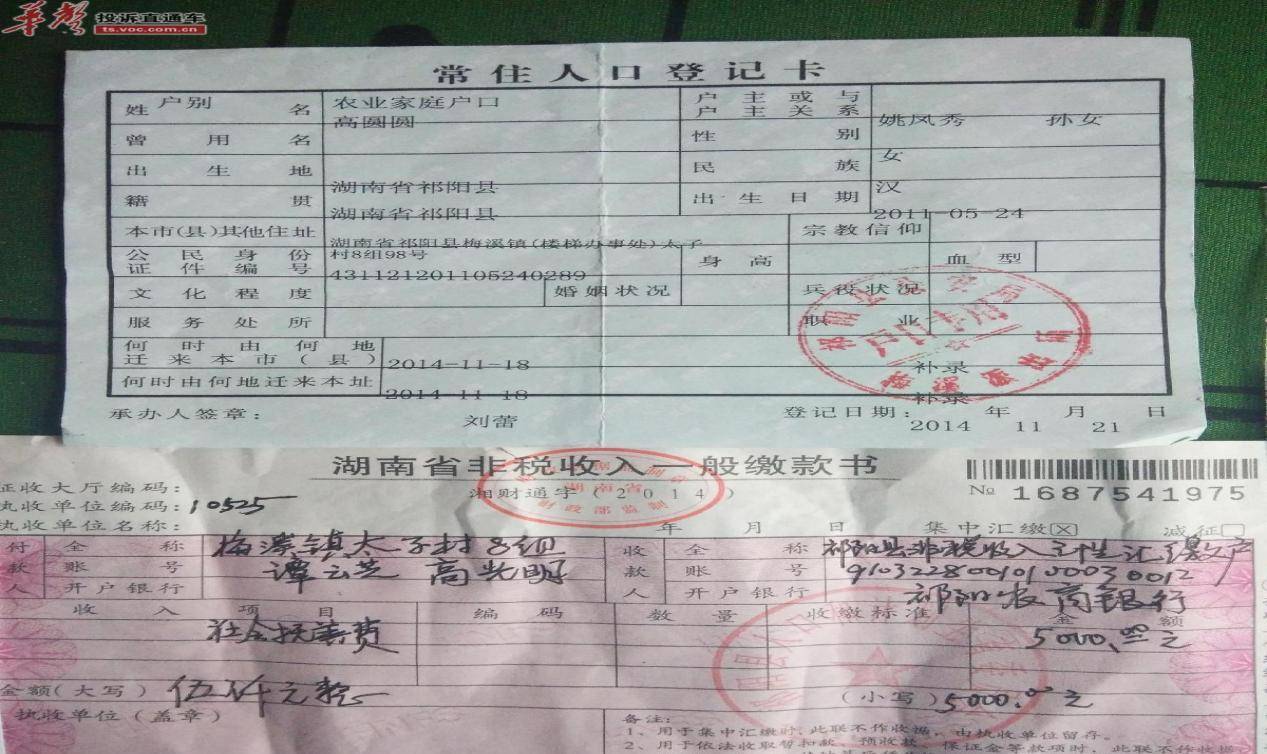 华声 投诉直通车
ts.voc.com.cn
常住人口登记卡
户别 农业家庭户口 户主或与户主关系 姚凤秀 孙女
姓名 高圆圆 性别 女
曾用名 民族 汉
出生地 湖南省祁阳县 出生日期 2011-05-24
籍贯 湖南省祁阳县
本市(县)其他住址 湖南省祁阳县梅溪镇(楼梯办事处)太子村8组98号 宗教信仰
公民身份证件编号 431121201105240289 身高 血型
文化程度 婚姻状况 兵役状况
服务处所 职业
何时由何地迁来本市(县) 2014-11-18 补录
何时由何地迁来本址 2014-11-18 补录
承办人签章： 刘蕾 登记日期： 2014年11月21日
户口专用
湖南省非税收入一般缴款书
征收大厅编码： 湘财通字(2014) № 1687541975
执收单位编码：10525
执收单位名称： 年 月 日 集中汇缴☒ 减征☐
付款人 全称 梅溪镇太子村8组 收款人 全称 祁阳县非税收入
账号 谭云芝 高光明 账号 91032280010100030012
开户银行 开户银行 祁阳农商银行
收入项目 编码 数量 收缴标准 金额
社会抚养费 5000.00元
金额(大写) 伍仟元整 (小写) 5000.00元
执收单位(盖章) 备注：
1、用于集中汇缴时，此联不作收据，由执收单位留存。
2、用于依法收取暂扣款、预收款、保证金等款项时，此联不作收据